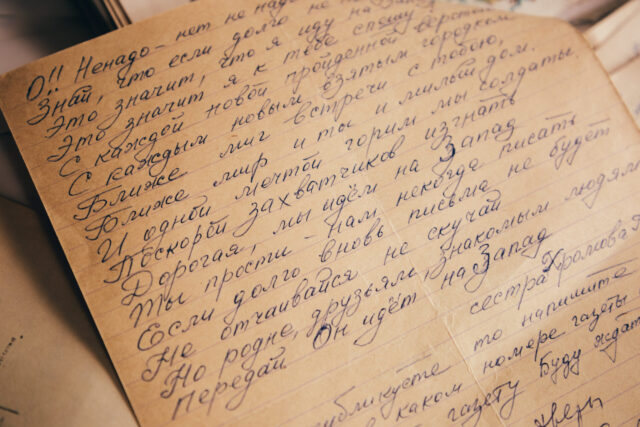 О!! Ненадо - нет не надо
Знай, что если долго не
Это значит, что я иду на Запад
Это значит я к тебе спешу
С каждой новой пройденной верстою
С каждым новым взятым городком
Ближе миг встречи с тобою,
Ближе мир и ты и милый дом.
И одной мечтой горим мы солдаты
Поскорей захватчиков изгнать
Дорогая, мы идём на Запад
Ты прости - нам некогда писать
Если долго вновь письма не будет
Не отчаивайся не скучай
Но родне, друзьям, знакомым людям
Передай Он идёт на Запад
сестра
то напишите
в каком номере газеты
газету буду ждать